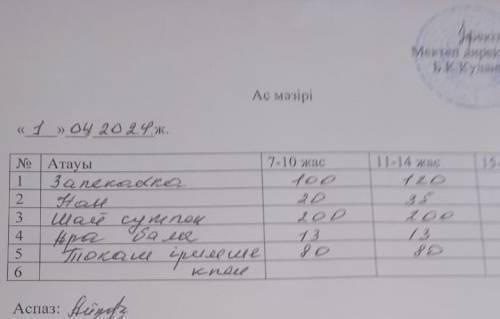 Мектеп дирек
Б.К.Кулан
Ас мәзірі
« 1 » 04 2024 ж.
№ Атауы 7-10 жас 11-14 жас 15-
1 Запекадка 100 120
2 Нан 20 35
3 Шай сутпен 200 200
4 13 13
5 Токаш 80 80
6
Аспаз: